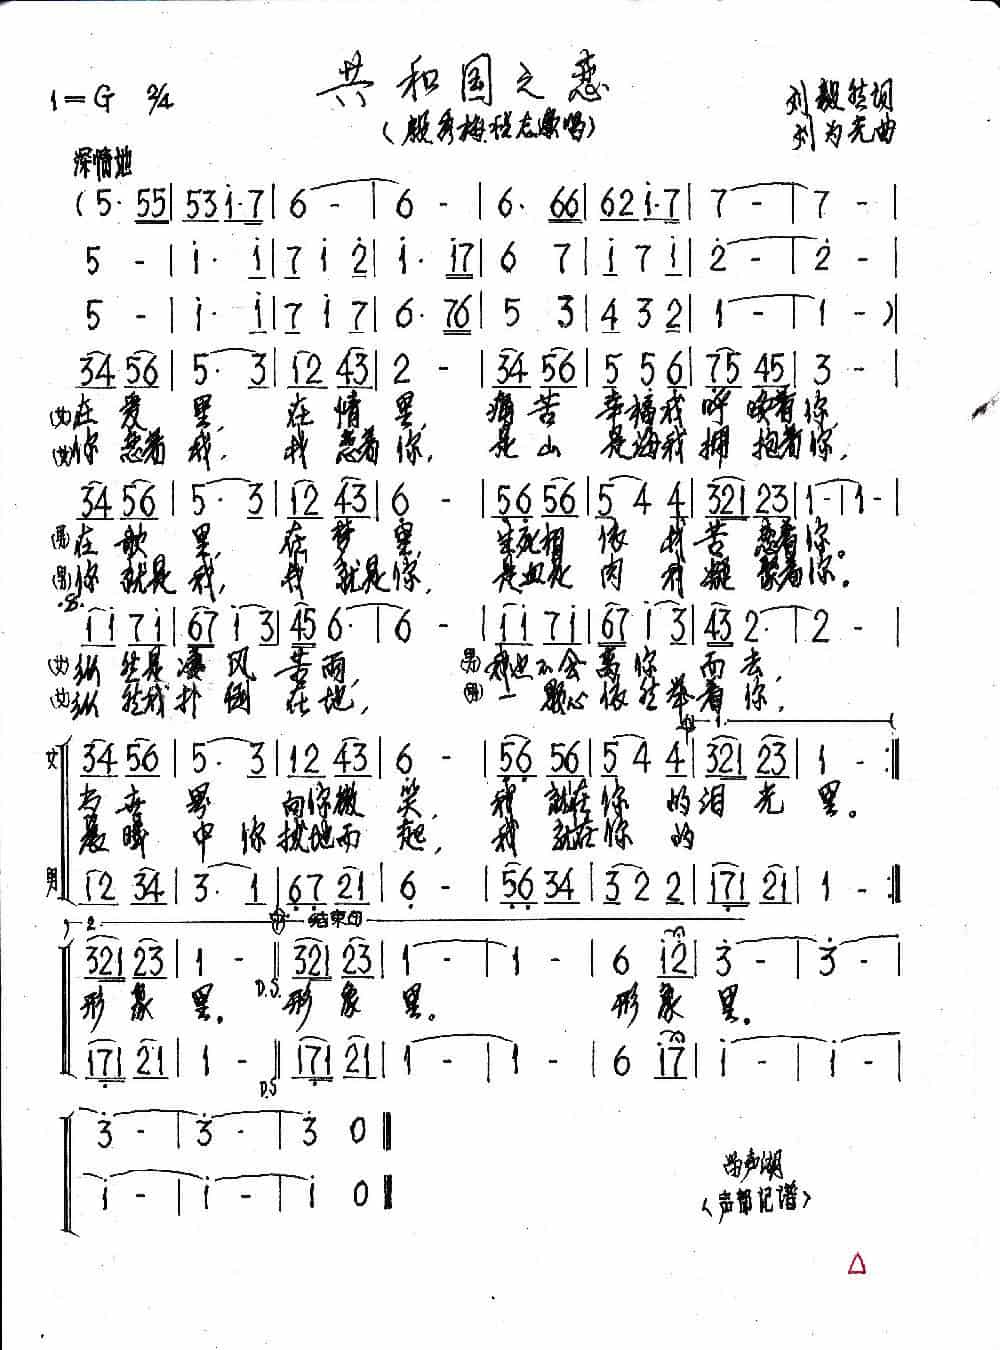 共和国之恋
1=G 2/4
(殷秀梅 演唱)
刘毅然词
刘为光曲
深情地
(5· 55 | 53 1·7 | 6 - | 6 - | 6· 66 | 62 1·7 | 7 - | 7 - |
5 - | 1· 1 | 7 1 2 | 1· 17 | 6 7 | 1 7 1 | 2 - | 2 - |
5 - | 1· 1 | 7 1 7 | 6· 76 | 5 3 | 4 3 2 | 1 - | 1 - )|
34 56 | 5· 3 | 12 43 | 2 - | 34 56 | 5 5 6 | 75 45 | 3 - |
(女)在爱里，在情里，痛苦幸福我呼唤着你，
(女)你恋着我，我恋着你，是山是海我拥抱着你，
34 56 | 5· 3 | 12 43 | 6 - | 56 56 | 5 4 4 | 321 23 | 1 - | 1 - |
(男)在歌里，在梦里，生死相依我苦恋着你。
(男)你就是我，我就是你，是血是肉我凝聚着你。
11 71 | 67 1 3 | 45 6· | 6 - | 11 71 | 67 1 3 | 43 2· | 2 - |
(女)纵然是凄风苦雨，(男)我也不会离你而去，
(女)纵然我扑倒在地，(男)一颗心依然举着你，
1.
女 34 56 | 5· 3 | 12 43 | 6 - | 56 56 | 5 4 4 | 321 23 | 1 - :||
当世界向你微笑，我就在你的泪光里。
晨曦中你拔地而起，我就在你的
男 12 34 | 3· 1 | 67 21 | 6 - | 56 34 | 3 2 2 | 171 21 | 1 - :||
2. 结束句
321 23 | 1 - || 321 23 | 1 - | 1 - | 6 12 | 3 - | 3 - |
形象里。D.S. 形象里。形象里。
171 21 | 1 - || 171 21 | 1 - | 1 - | 6 17 | 1 - | 1 - |
D.S
3 - | 3 - | 3 0 ||
1 - | 1 - | 1 0 ||
(声部记谱)